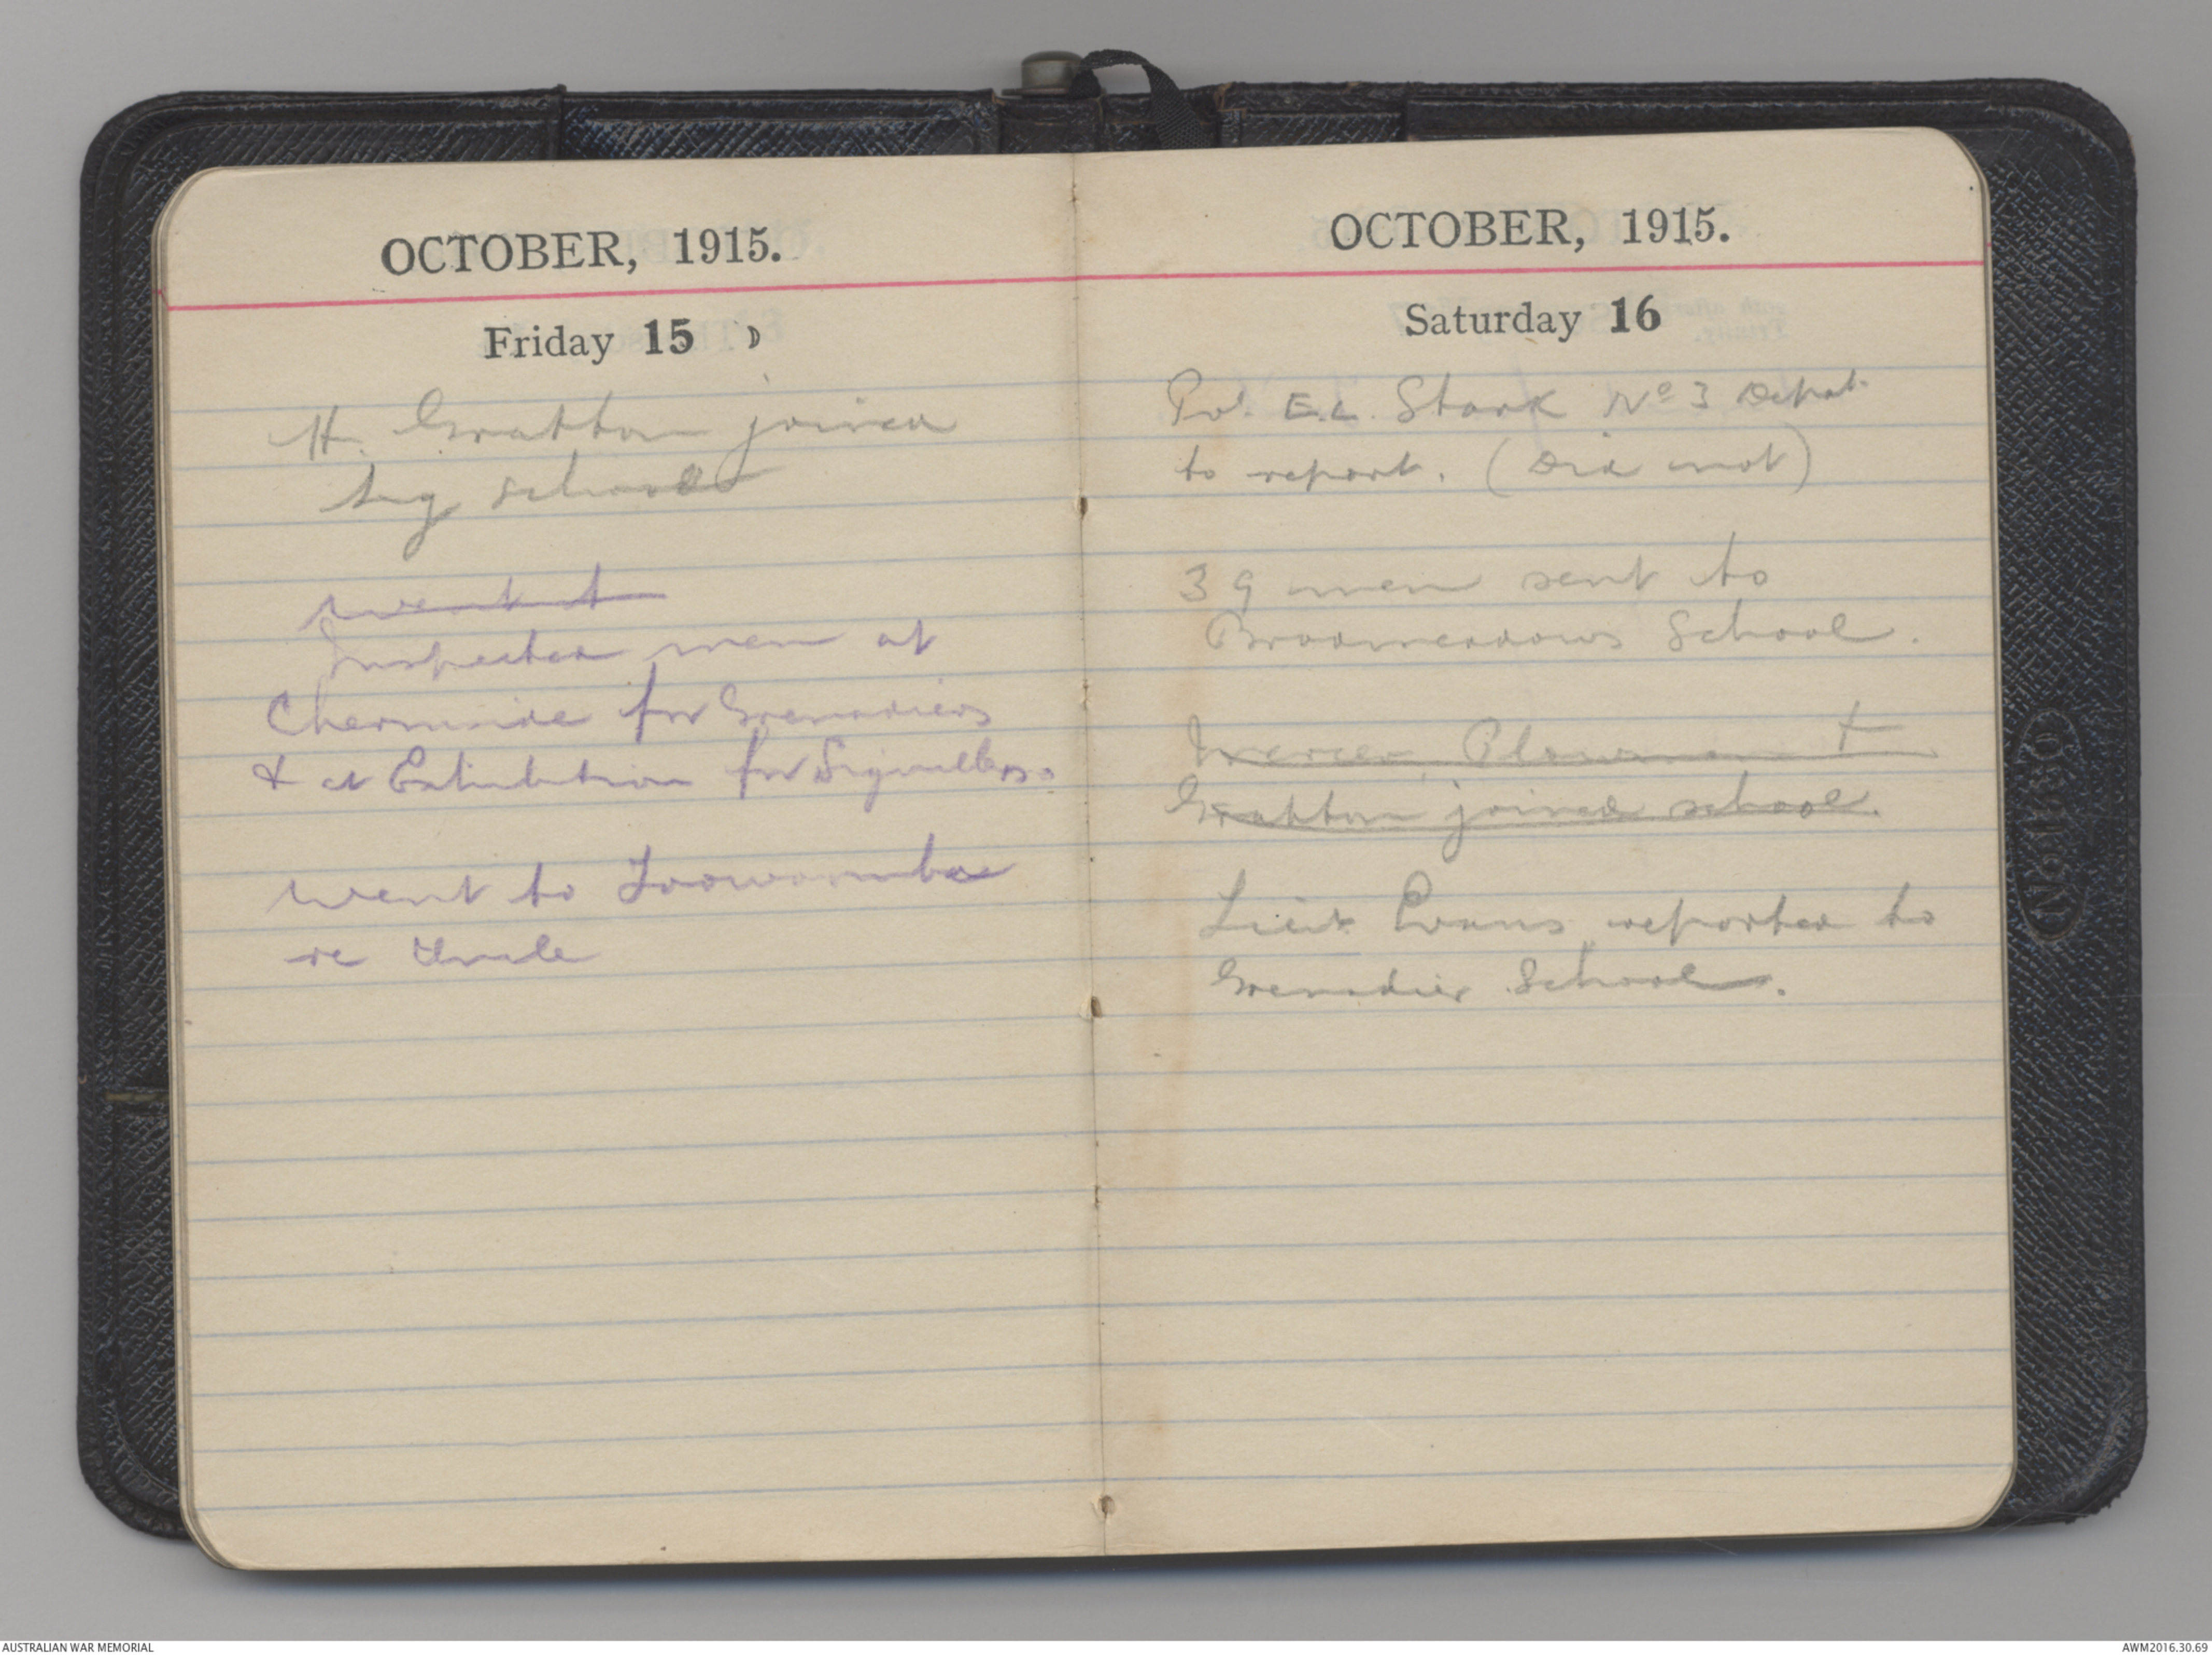 OCTOBER, 1915.
Friday 15
H. Gratton joined
Sig School
went t
Inspected men at
Chermside for Grenadiers
& at Exhibition for Signallers.
went to Toowoomba
re
OCTOBER, 1915.
Saturday 16
Pvt. E.C. Stark No 3 Depot
to report. (Did not)
39 men sent to
Broadmeadows School.
Plowman +
Gratton joined school.
Lieut Evans reported to
Grenadier School.
AUSTRALIAN WAR MEMORIAL
AWM2016.30.69